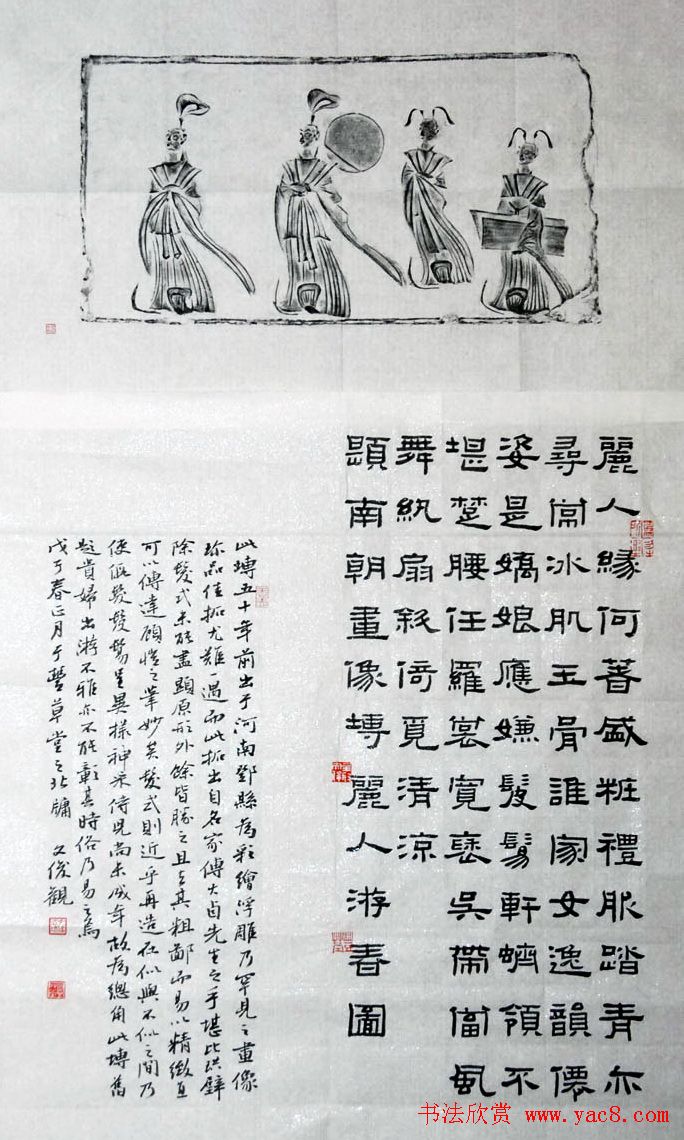 麗人緣何著盛粧禮服踏青亦
尋常冰肌玉骨誰家女逸韻僊
姿是嬌娘應嫌髮髻軒蠐領不
堪楚腰任羅裳寬裹吳帶當風
舞紈扇斜倚覓清涼
題南朝畫像塼麗人游春圖
此塼五十年前出于河南鄧縣為彩繪浮雕乃罕見之畫像
珍品佳拓尤難一遇而此拓出自名家傅大卣先生之手堪比拱璧
除髮式未能盡顯原形外餘皆勝之且去其粗鄙而易以精緻直
可以傳達顧愷之筆妙矣髮式則近乎再造在似與不似之間乃
使髮髻呈異樣神采侍児尚未成年故為總角此塼舊
題貴婦出游不雅亦不能彰其時俗乃易之焉
戊子春正月于豐草堂之北牖 文俊觀
书法欣赏 www.yac8.com